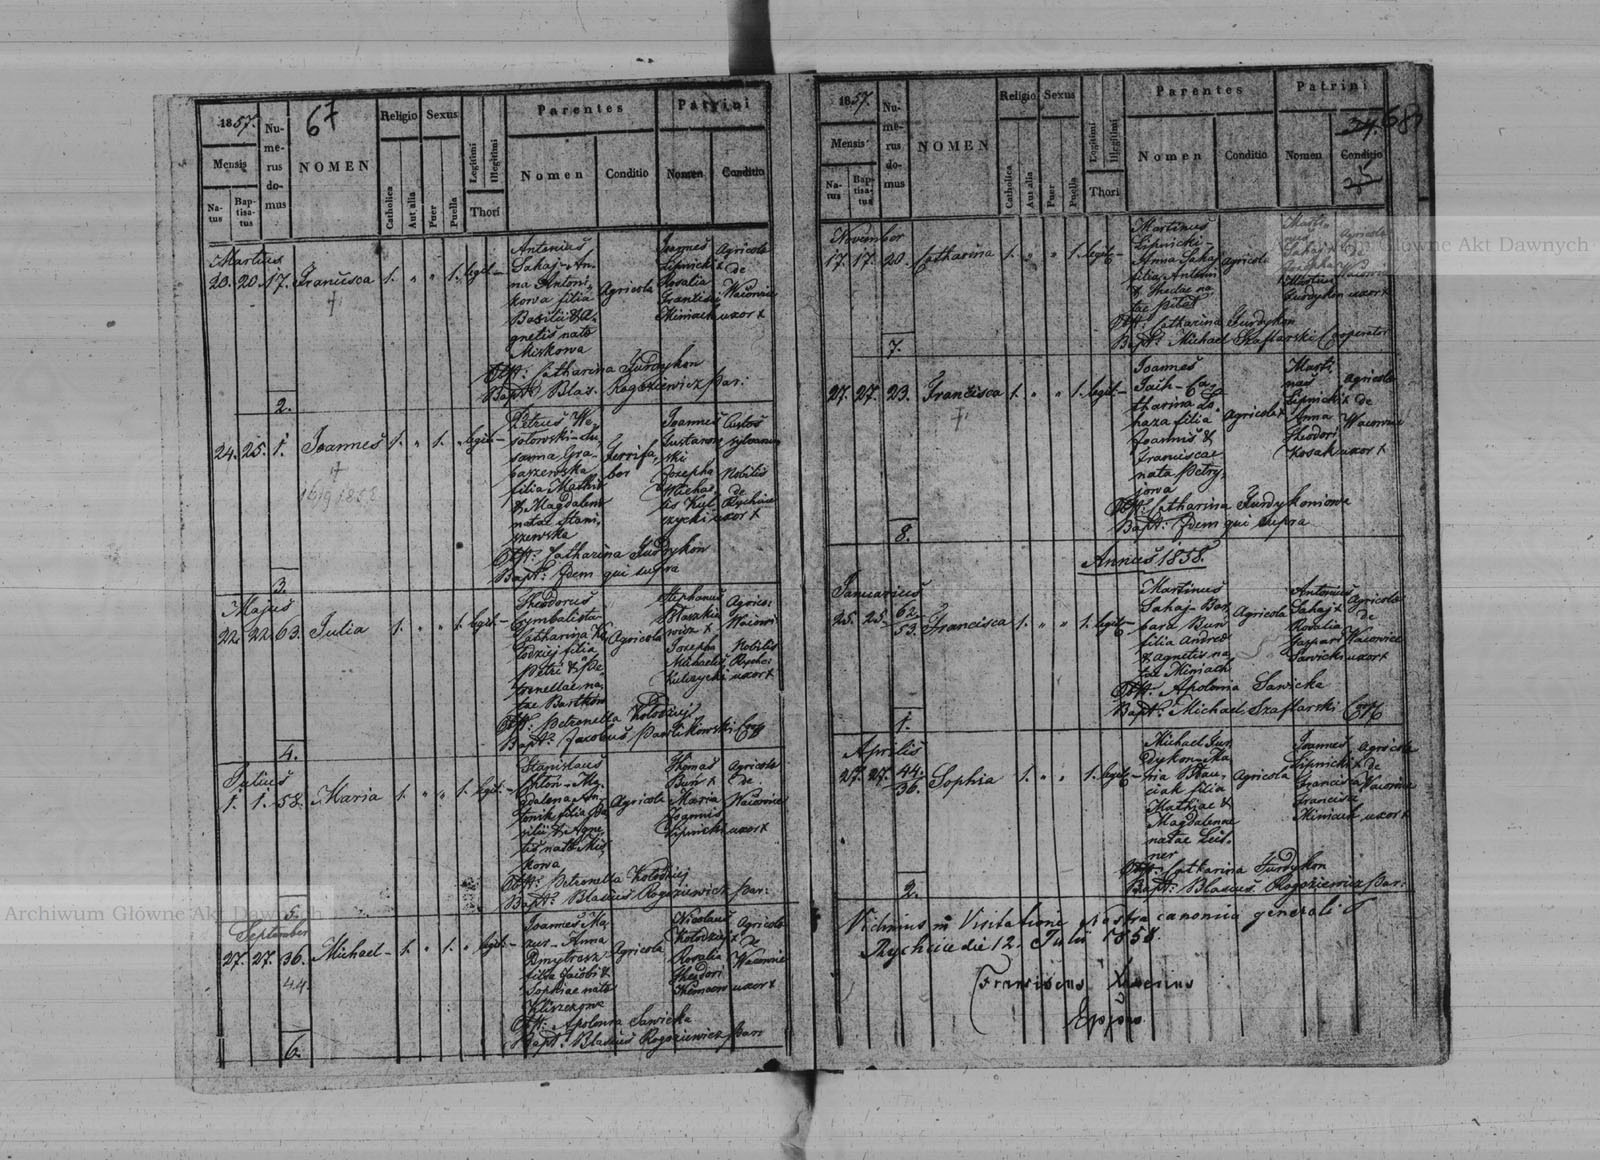 67
1857.
Mensis
Natus
Baptisatus
Numerus domus
NOMEN
Religio
Catholica
Aut alia
Sexus
Puer
Puella
Legitimi
Illegitimi
Thori
Parentes
Nomen
Conditio
Patrini
Nomen
Conditio
Martius
20. 20. 17. Francisca 1. " " 1. legit.
Antonius
Sahaj - An-
na Antoni-
kowa filia
Basilii & A-
gnetis nata
Miskowa
Agricola
Joannes
Lipnicki x
Rosalia
Francisci
Miniach
Agricola
de
Wacowice
uxor x
Obst: Catharina Jurdykon
Bapt: Blas. Rogoziewicz Par:
2.
24. 25. 1. Joannes 1. " 1. " legit.
Petrus We-
sołowski - Su-
sanna Gra-
baszewska
filia Mathiæ
& Magdalena
natae Stani-
szewska
Joannes
Josepha
Michae-
lis Kul-
czycki
Custos
sylvarum
Nobilis
de
Rychcice
uxor x
Obst: Catharina Jurdykon
Bapt: Idem qui supra
3.
Majus
22. 22. 63. Julia 1. " " 1. legit.
Theodorus
Cymbalista
Catharina Ko-
łodziej filia
Petri & Pe-
tronellae na-
tae Bartków
Agricola
Stephanus
Błaszkie-
wicz x
Josepha
Michaelis
Kulczycki
Agrico:
Nobilis
Rychci
uxor x
Obst: Petronella Kołodziej
Bapt: Jacobus Pawlikowski Coop
4.
Julius
1. 1. 58. Maria 1. " " 1. legit.
Stanislaus
Magdalena An-
tonik filia Ba-
silii & Agne-
tis nata Mis-
kowa
Agricola
Thomas
Bun x
Maria
Joannis
Lipnicki
Agricola
de
Wacowice
uxor x
Obst: Petronella Kołodziej
Bapt: Blasius Rogoziewicz Par:
5.
September
27. 27. 36. Michael 1. " 1. " legit.
44.
Joannes Ma-
zur - Anna
Dmytrasz
filia Jacobi &
Sophiae nata
Agricola
Nicolaus
Kołodziej x
Rosalia
Theodori
Agricola
de
Wacowice
uxor x
Obst: Apolonia Sawicka
Bapt: Blasius Rogoziewicz Par
6.
1857.
Mensis
Natus
Baptisatus
Numerus domus
NOMEN
Religio
Catholica
Aut alia
Sexus
Puer
Puella
Legitimi
Illegitimi
Thori
Parentes
Nomen
Conditio
Patrini
Nomen
Conditio
34. 68
November
17. 17. 20. Catharina 1. " " 1. legit.
Martinus
Lipnicki -
Anna Sahaj
filia Antonii
Agricola
Jurdykon uxor x
Obst: Catharina Jurdykon
Bapt: Michael Szaflarski Cooperator
7.
27. 27. 23. Francisca 1. " " 1. legit.
Joannes
Catharina
filia
Joannis &
Franciscae
nata Petry-
jowa
Agricola
Marti-
nus
Lipnicki x
Anna
Theodori
Kosak
Agricola
de
Wacowice
uxor x
Obst: Catharina Jurdykoniowa
Bapt: Idem qui supra
8.
Annus 1858.
Januarius
25. 25. 62/53. Francisca 1. " " 1. legit.
Martinus
Sahaj - Bar-
bara Bun
filia Andreæ
& Agnetis na-
tae Miniach
Agricola
Antonius
Sahaj x
Rosalia
Gaspari
Sawicki
Agricola
de
Wacowice
uxor x
Obst: Apolonia Sawicka
Bapt: Michael Szaflarski Coop
1.
Aprilis
27. 27. 44/36. Sophia 1. " " 1. legit.
Michael Jur-
dykon - Ma-
ria
filia
Mathiae &
Magdalenae
natae Leit-
ner
Agricola
Joannes
Lipnicki x
Francisca
Francisci
Miniach
Agricola
de
Wacowice
uxor x
Obst: Catharina Jurdykon
Bapt: Blasius Rogoziewicz Par:
2.
Vidimus in Visitatione Nostra canonica generali
Rychcice die 12. Julii 1858.
Franciscus Xaverius
Eppus
Archiwum Główne Akt Dawnych
Archiwum Główne Akt Dawnych